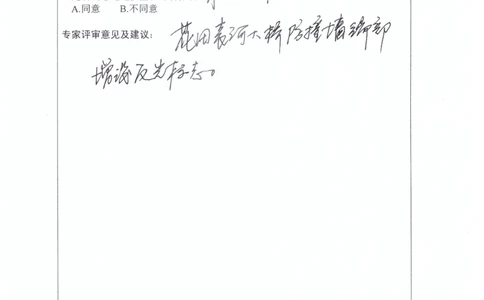 A.同意 B.不同意
专家评审意见及建议： 花田表河大桥防撞墙端部
增设反光标志。